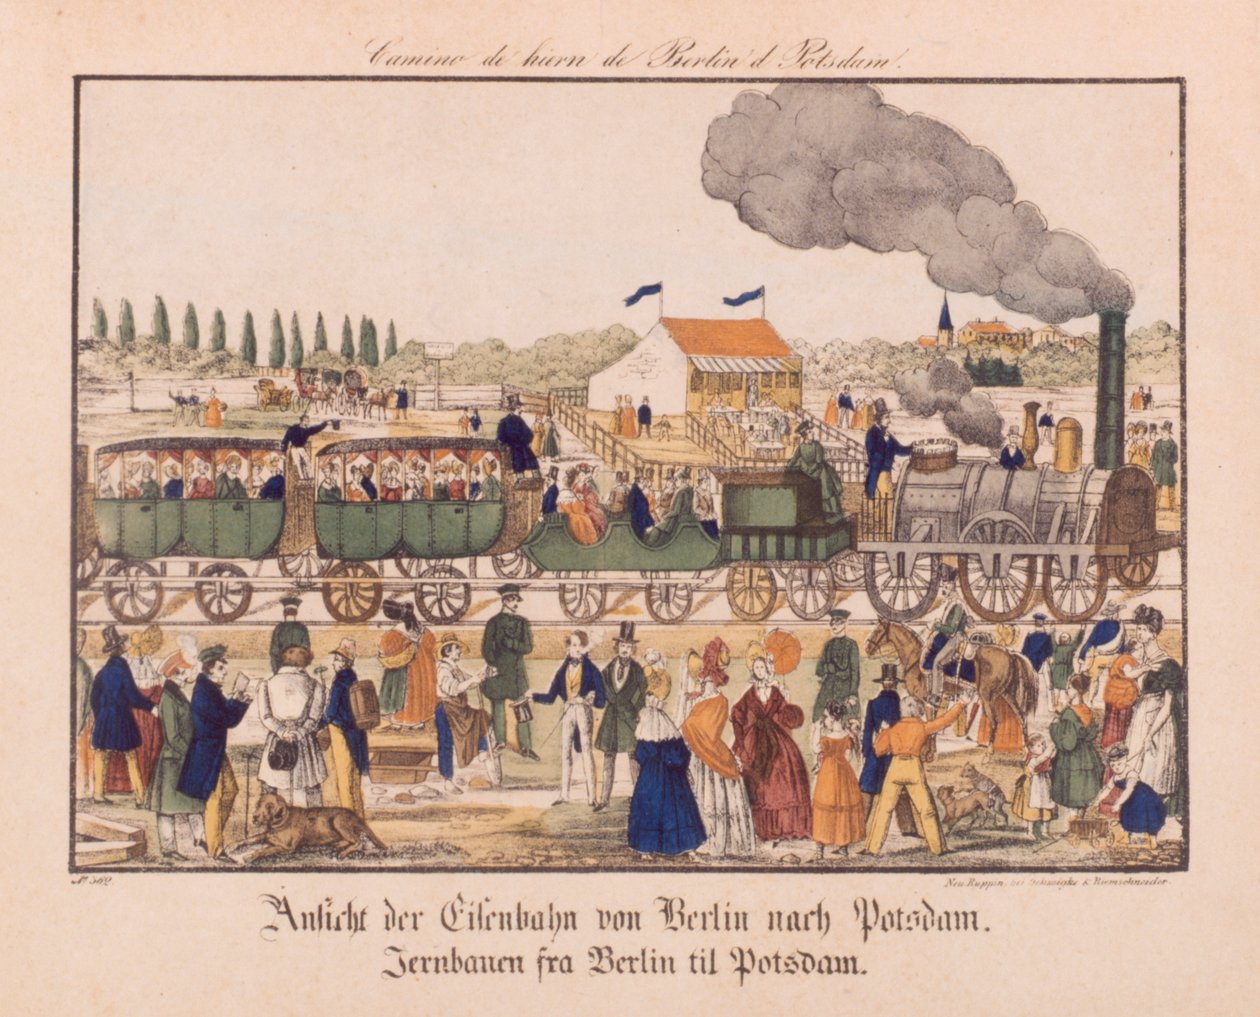 Camino de hiern de Berlin d Potsdam.
No. 562.
Neu Ruppin, bei Schweipke & Riemschneider.
Ansicht der Eisenbahn von Berlin nach Potsdam.
Jernbanen fra Berlin til Potsdam.